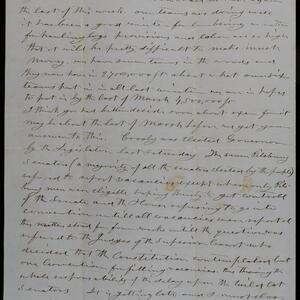 the last of this week. our teams are doing well
it has been a good winter for lumbering
for hauling logs provisions and labor are so high
that it will be pretty difficult to make much
money, we have seven teams in the woods and
they now have in 2700,000 ft about what our six
teams put in in all last winter we are in hopes
to put in by the last of March 4,500,000 ft
I think you had better decide soon about open fruit
may be the last of March before we get your
answer to this. Crosby was elected Governor
by the Legislature last Saturday. The seven Pillsbury
Senators (a majority of all the senators elected by the people)
refused to report vacancies except where only Pills-
bury men were eligible hoping to get control
of the Senate and the House refusing to go into
convention until all vacancies were reported
the matter stood for four weeks until the question was
referred to the Judges of the Supreme Court who
decided that the Constitution contemplates but
one Convention for filling vacancies. thus throwing the
whole responsibility of the delay upon the Wild Cat
Senators. It is getting late and I must close